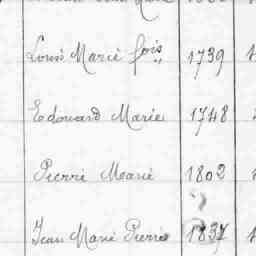 Louis Marie fois 1739
Edouard Marie 1748
Pierre Marie 1802
?
Jean Marie Pierre 1837